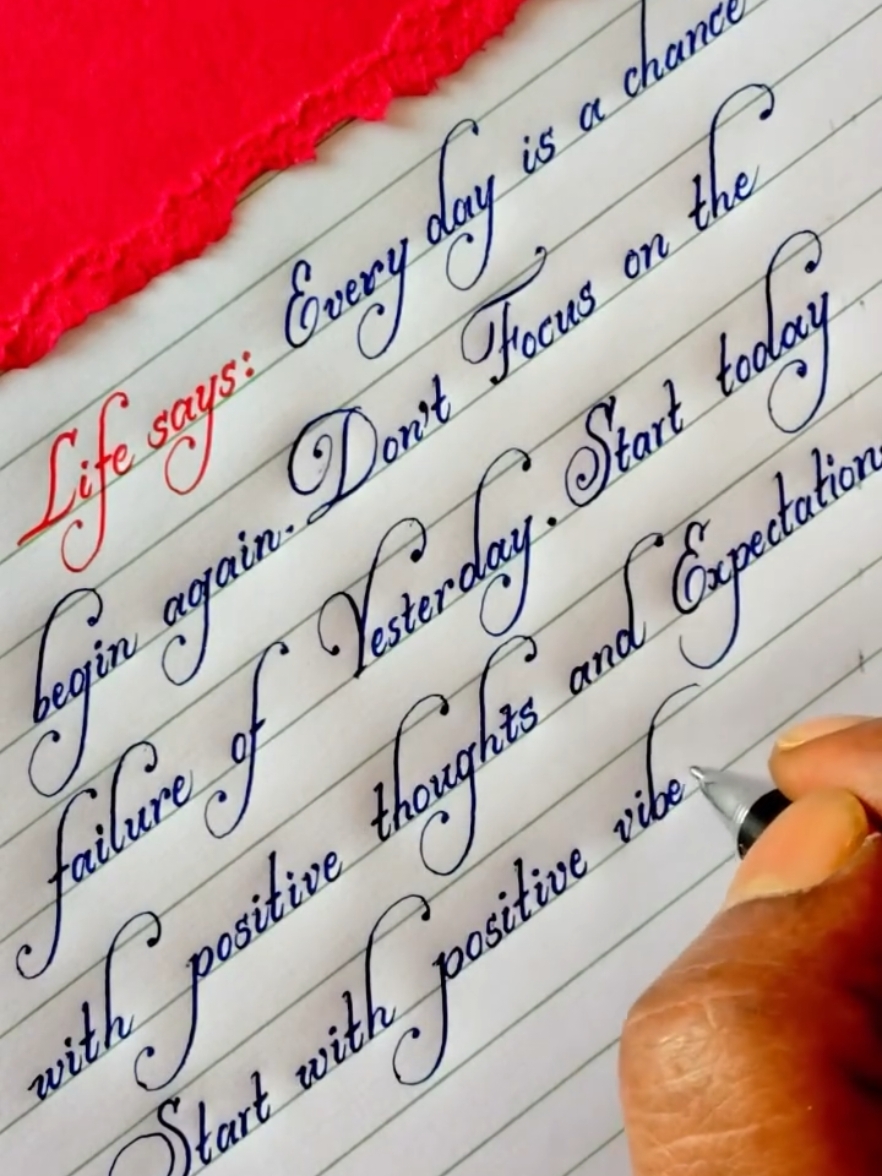 Life says: Every day is a chance
begin again. Don't Focus on the
failure of Yesterday. Start today
with positive thoughts and Expectation
Start with positive vibe